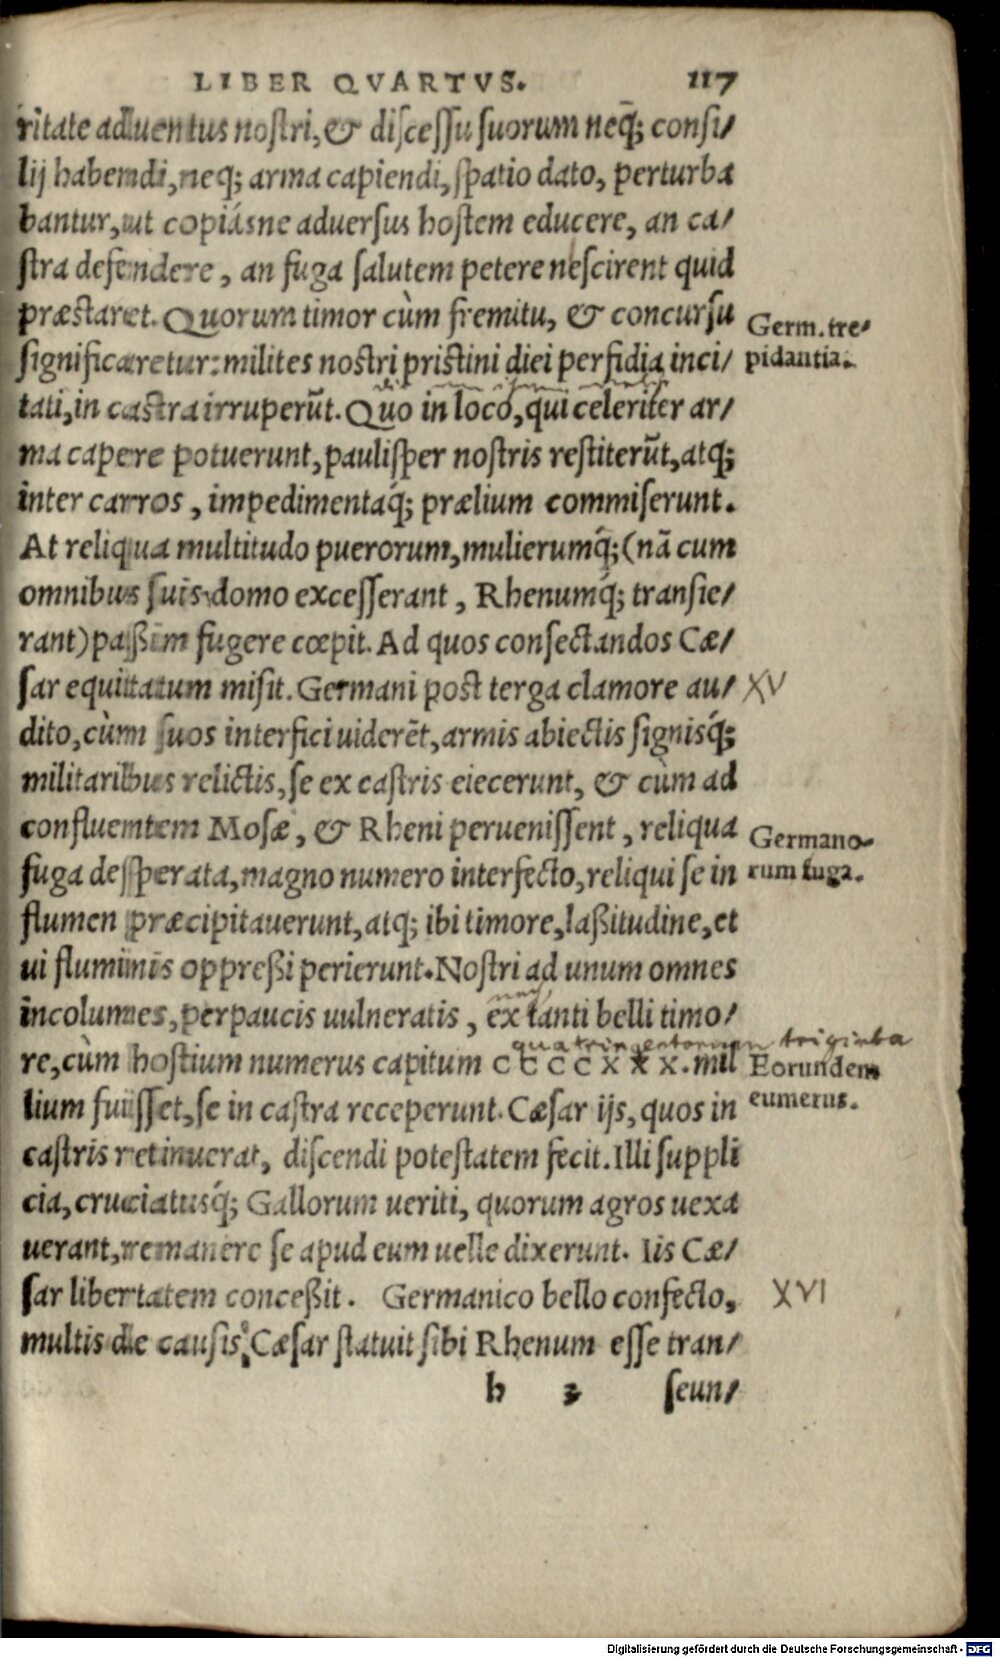 LIBER QVARTVS. 117
ritate aduentus nostri, & discessu suorum neq; consi/
lij habendi, neq; arma capiendi, spatio dato, perturba
bantur, ut copiásne aduersus hostem educere, an ca/
stra defendere, an fuga salutem petere nescirent quid
præstaret. Quorum timor cùm fremitu, & concursu
Germ. tre-
significaretur: milites nostri pristini diei perfidia inci/
pidantia.
tati, in castra irruperũt. Quo in loco, qui celeriter ar/
ma capere potuerunt, paulisper nostris restiterũt, atq;
inter carros, impedimentaq́; prælium commiserunt.
At reliqua multitudo puerorum, mulierumq́; (nã cum
omnibus suis domo excesserant, Rhenumq́; transie/
rant) paßim fugere cœpit. Ad quos consectandos Cæ/
sar equitatum misit. Germani post terga clamore au/
XV
dito, cùm suos interfici uiderẽt, armis abiectis signisq́;
militaribus relictis, se ex castris eiecerunt, & cùm ad
confluentem Mosæ, & Rheni peruenissent, reliqua
Germano-
fuga desperata, magno numero interfecto, reliqui se in
rum fuga.
flumen præcipitauerunt, atq; ibi timore, laßitudine, et
ui fluminis oppreßi perierunt. Nostri ad unum omnes
incolumes, perpaucis uulneratis, ex tanti belli timo/
quatringentorum triginta
re, cùm hostium numerus capitum CCCCXXX. mil
Eorundem
lium fuisset, se in castra receperunt. Cæsar ijs, quos in
eumerus.
castris retinuerat, discendi potestatem fecit. Illi suppli
cia, cruciatusq́; Gallorum ueriti, quorum agros uexa
uerant, remanere se apud eum uelle dixerunt. Iis Cæ/
sar libertatem conceßit. Germanico bello confecto,
XVI
multis de causis, Cæsar statuit sibi Rhenum esse tran/
h 3 seun/
Digitalisierung gefördert durch die Deutsche Forschungsgemeinschaft - DFG